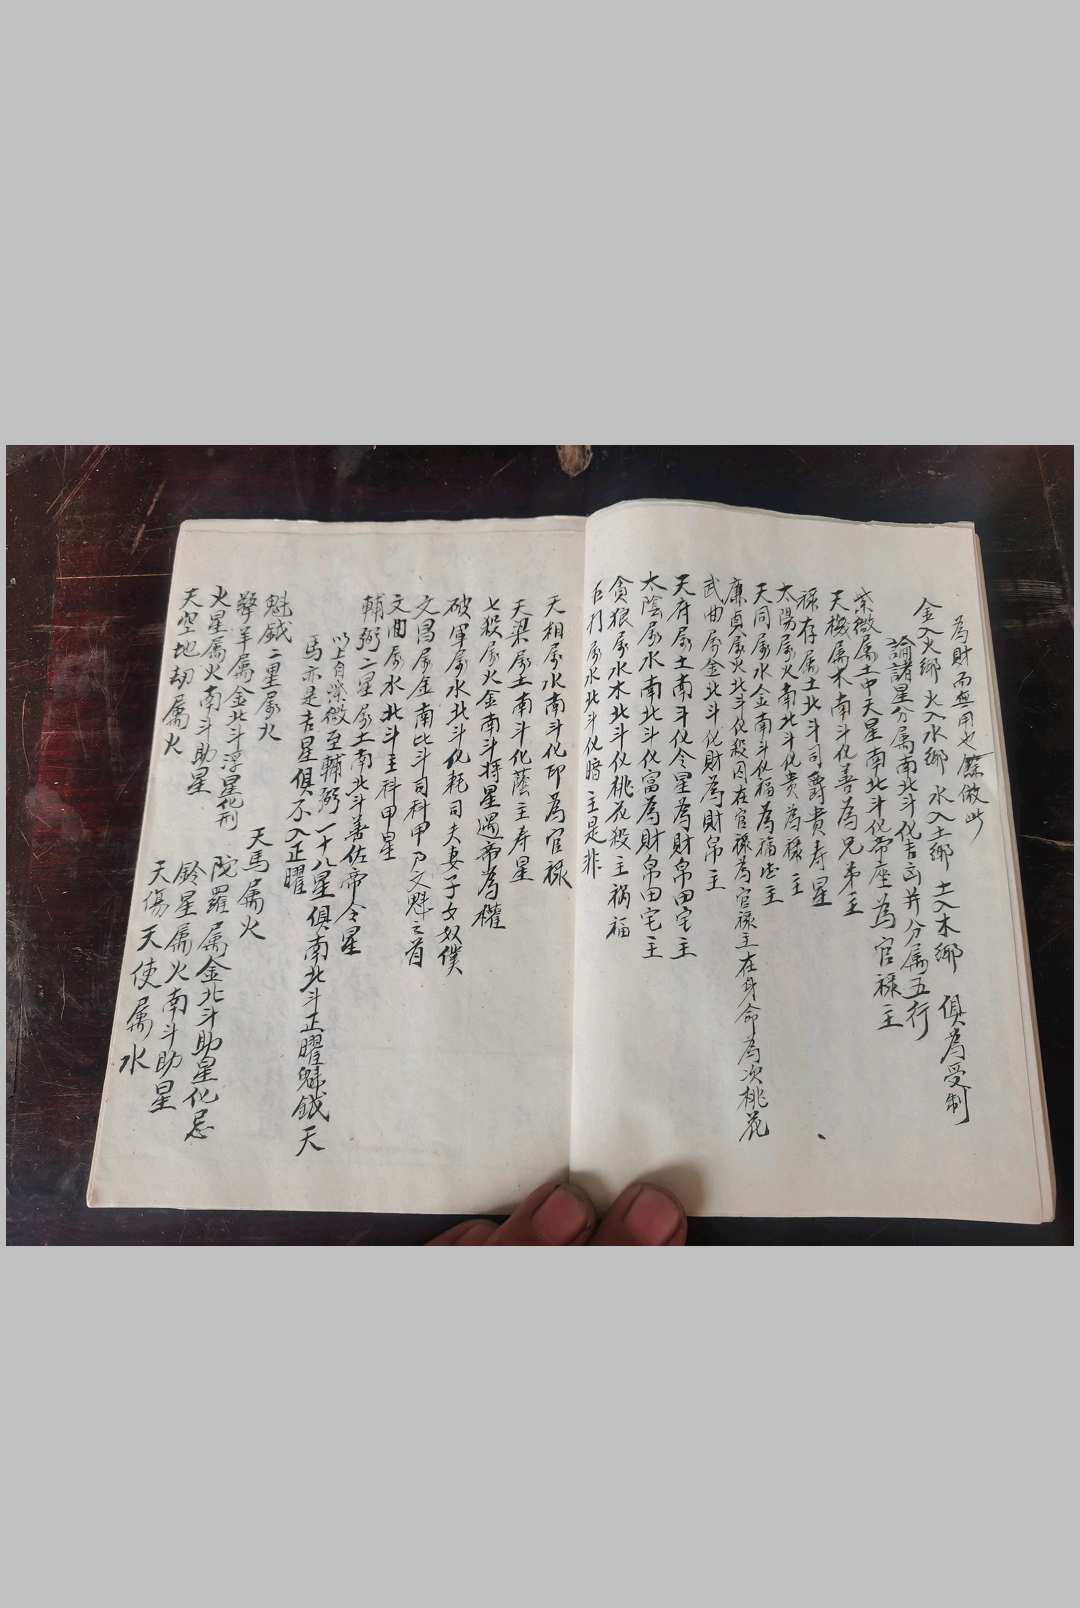 為財而無用也餘倣此
金入火鄉 火入水鄉 水入土鄉 土入木鄉 俱為受制
論諸星分属南北斗化吉凶并分属五行
紫微属土中天星南北斗化帝座為官祿主
天機属木南斗化善為兄弟主
祿存属土北斗司爵貴寿星
太陽属火南北斗化贵為祿主
天同属水金南斗化福為福德主
廉貞属火北斗化殺囚在官祿為官祿主在身命為次桃花
武曲属金北斗化財為財帛主
天府属土南斗化令星為財帛田宅主
太陰属水南北斗化富為財帛田宅主
貪狼属水木北斗化桃花殺主祸福
巨门属水北斗化暗主是非
天相属水南斗化印為官祿
天梁属土南斗化蔭主寿星
七殺属火金南斗将星遇帝為權
破军属水北斗化耗司夫妻子女奴僕
文昌属金南北斗司科甲乃文魁之首
文曲属水北斗主科甲星
輔弼二星属土南北斗善佐帝令星
以上自紫微至輔弼一十八星俱南北斗正曜魁鉞天
馬亦是吉星俱不入正曜
魁鉞二星属火 天馬属火
擎羊属金北斗浮星化刑 陀羅属金北斗助星化忌
火星属火南斗助星 鈴星属火南斗助星
天空地劫属火 天傷天使属水